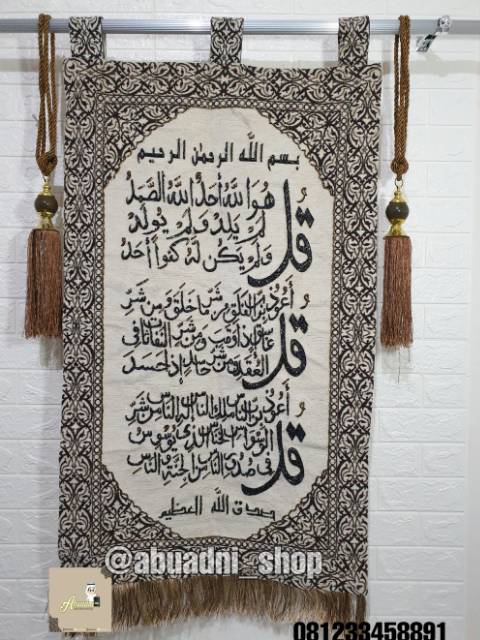 بسم الله الرحمن الرحيم
قُلْ هُوَ اللَّهُ أَحَدٌ اللَّهُ الصَّمَدُ
لَمْ يَلِدْ وَلَمْ يُولَدْ
وَلَمْ يَكُن لَّهُ كُفُوًا أَحَدٌ
قُلْ أَعُوذُ بِرَبِّ الْفَلَقِ مِن شَرِّ مَا خَلَقَ وَمِن شَرِّ
غَاسِقٍ إِذَا وَقَبَ وَمِن شَرِّ النَّفَّاثَاتِ فِي
الْعُقَدِ وَمِن شَرِّ حَاسِدٍ إِذَا حَسَدَ
قُلْ أَعُوذُ بِرَبِّ النَّاسِ مَلِكِ النَّاسِ إِلَهِ النَّاسِ مِن شَرِّ
الْوَسْوَاسِ الْخَنَّاسِ الَّذِي يُوَسْوِسُ
فِي صُدُورِ النَّاسِ مِنَ الْجِنَّةِ وَالنَّاسِ
صدق الله العظيم
@abuadni_shop
081233458891